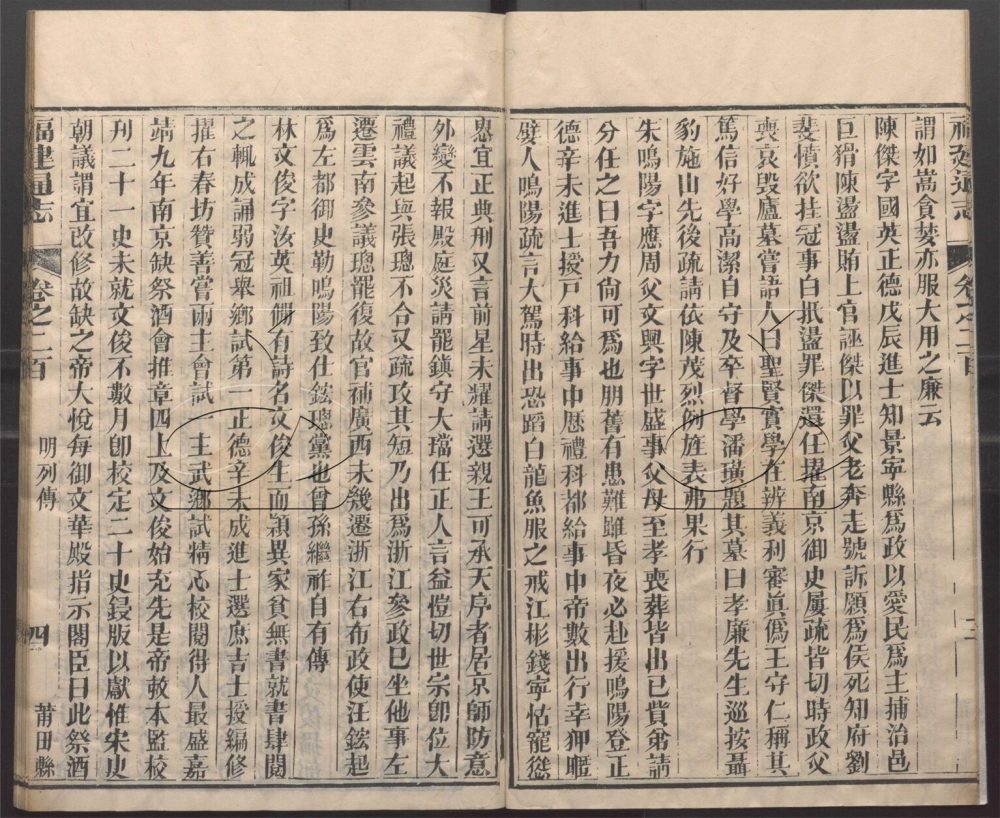 福建通志
謂如嵩貪婪亦服大用之廉云
陳傑字國英正德戊辰進士知景寧縣爲政以愛民爲主捕治邑
巨猾陳盪盪賄上官誣傑以罪父老奔走號訴願爲侯死知府劉
斐憤欲挂冠事白抵盪罪傑還任擢南京御史屢疏皆切時政父
喪哀毀廬墓嘗語人曰聖賢實學在辨義利審眞僞王守仁稱其
篤信好學高潔自守及卒督學潘璜題其墓曰孝廉先生巡按聶
豹施山先後疏請依陳茂烈例旌表弗果行
朱鳴陽字應周父文興字世盛事父母至孝喪葬皆出己貲弟請
分任之曰吾力尙可爲也朋舊有患難雖昏夜必赴援鳴陽登正
德辛未進士授戶科給事中歷禮科都給事中帝數出行幸狎暱
嬖人鳴陽疏言大駕時出恐蹈白龍魚服之戒江彬錢寧怙寵愆
愆宜正典刑又言前星未耀請選親王可承天序者居京師防意
外變不報殿庭災請罷鎮守大璫任正人言益愷切世宗卽位大
禮議起與張璁不合又疏攻其短乃出爲浙江參政已坐他事左
遷雲南參議璁罷復故官補廣西未幾遷浙江右布政使汪鋐起
爲左都御史勒鳴陽致仕鋐璁黨也曾孫繼祚自有傳
林文俊字汝英祖僩有詩名文俊生而穎異家貧無書就書肆閱
之輒成誦弱冠舉鄉試第一正德辛未成進士選庶吉士授編修
擢右春坊贊善嘗兩主會試一主武鄉試精心校閱得人最盛嘉
靖九年南京缺祭酒會推章四上及文俊始充先是帝敕本監校
刊二十一史未就文俊不數月卽校定二十史鋟版以獻惟宋史
朝議謂宜改修故缺之帝大悅每御文華殿指示閣臣曰此祭酒
福建通志 卷之二百 明列傳 四 莆田縣